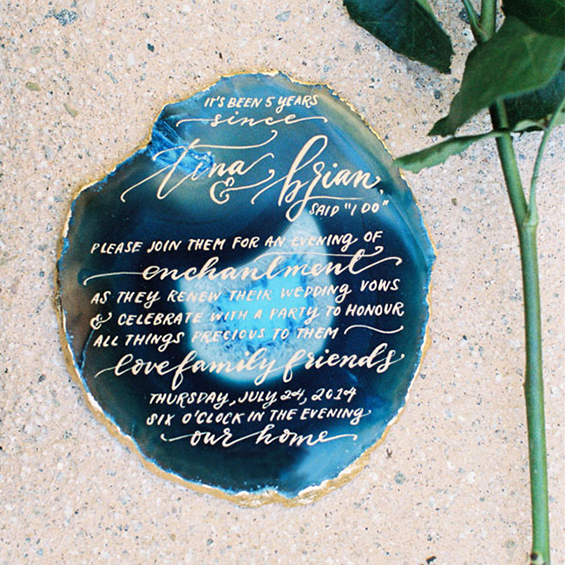 IT'S BEEN 5 YEARS
since
tina
& brian,
SAID "I DO"
PLEASE JOIN THEM FOR AN EVENING OF
enchantment
AS THEY RENEW THEIR WEDDING VOWS
& CELEBRATE WITH A PARTY TO HONOUR
ALL THINGS PRECIOUS TO THEM
love family friends
THURSDAY, JULY 24, 2014
SIX O'CLOCK IN THE EVENING
our home